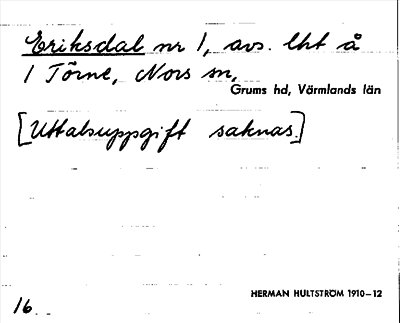 Eriksdal nr 1, avs. lht å
1 Törne, Nors sn,
Grums hd, Värmlands län
[Uttalsuppgift saknas.]
HERMAN HULTSTRÖM 1910–12
16.